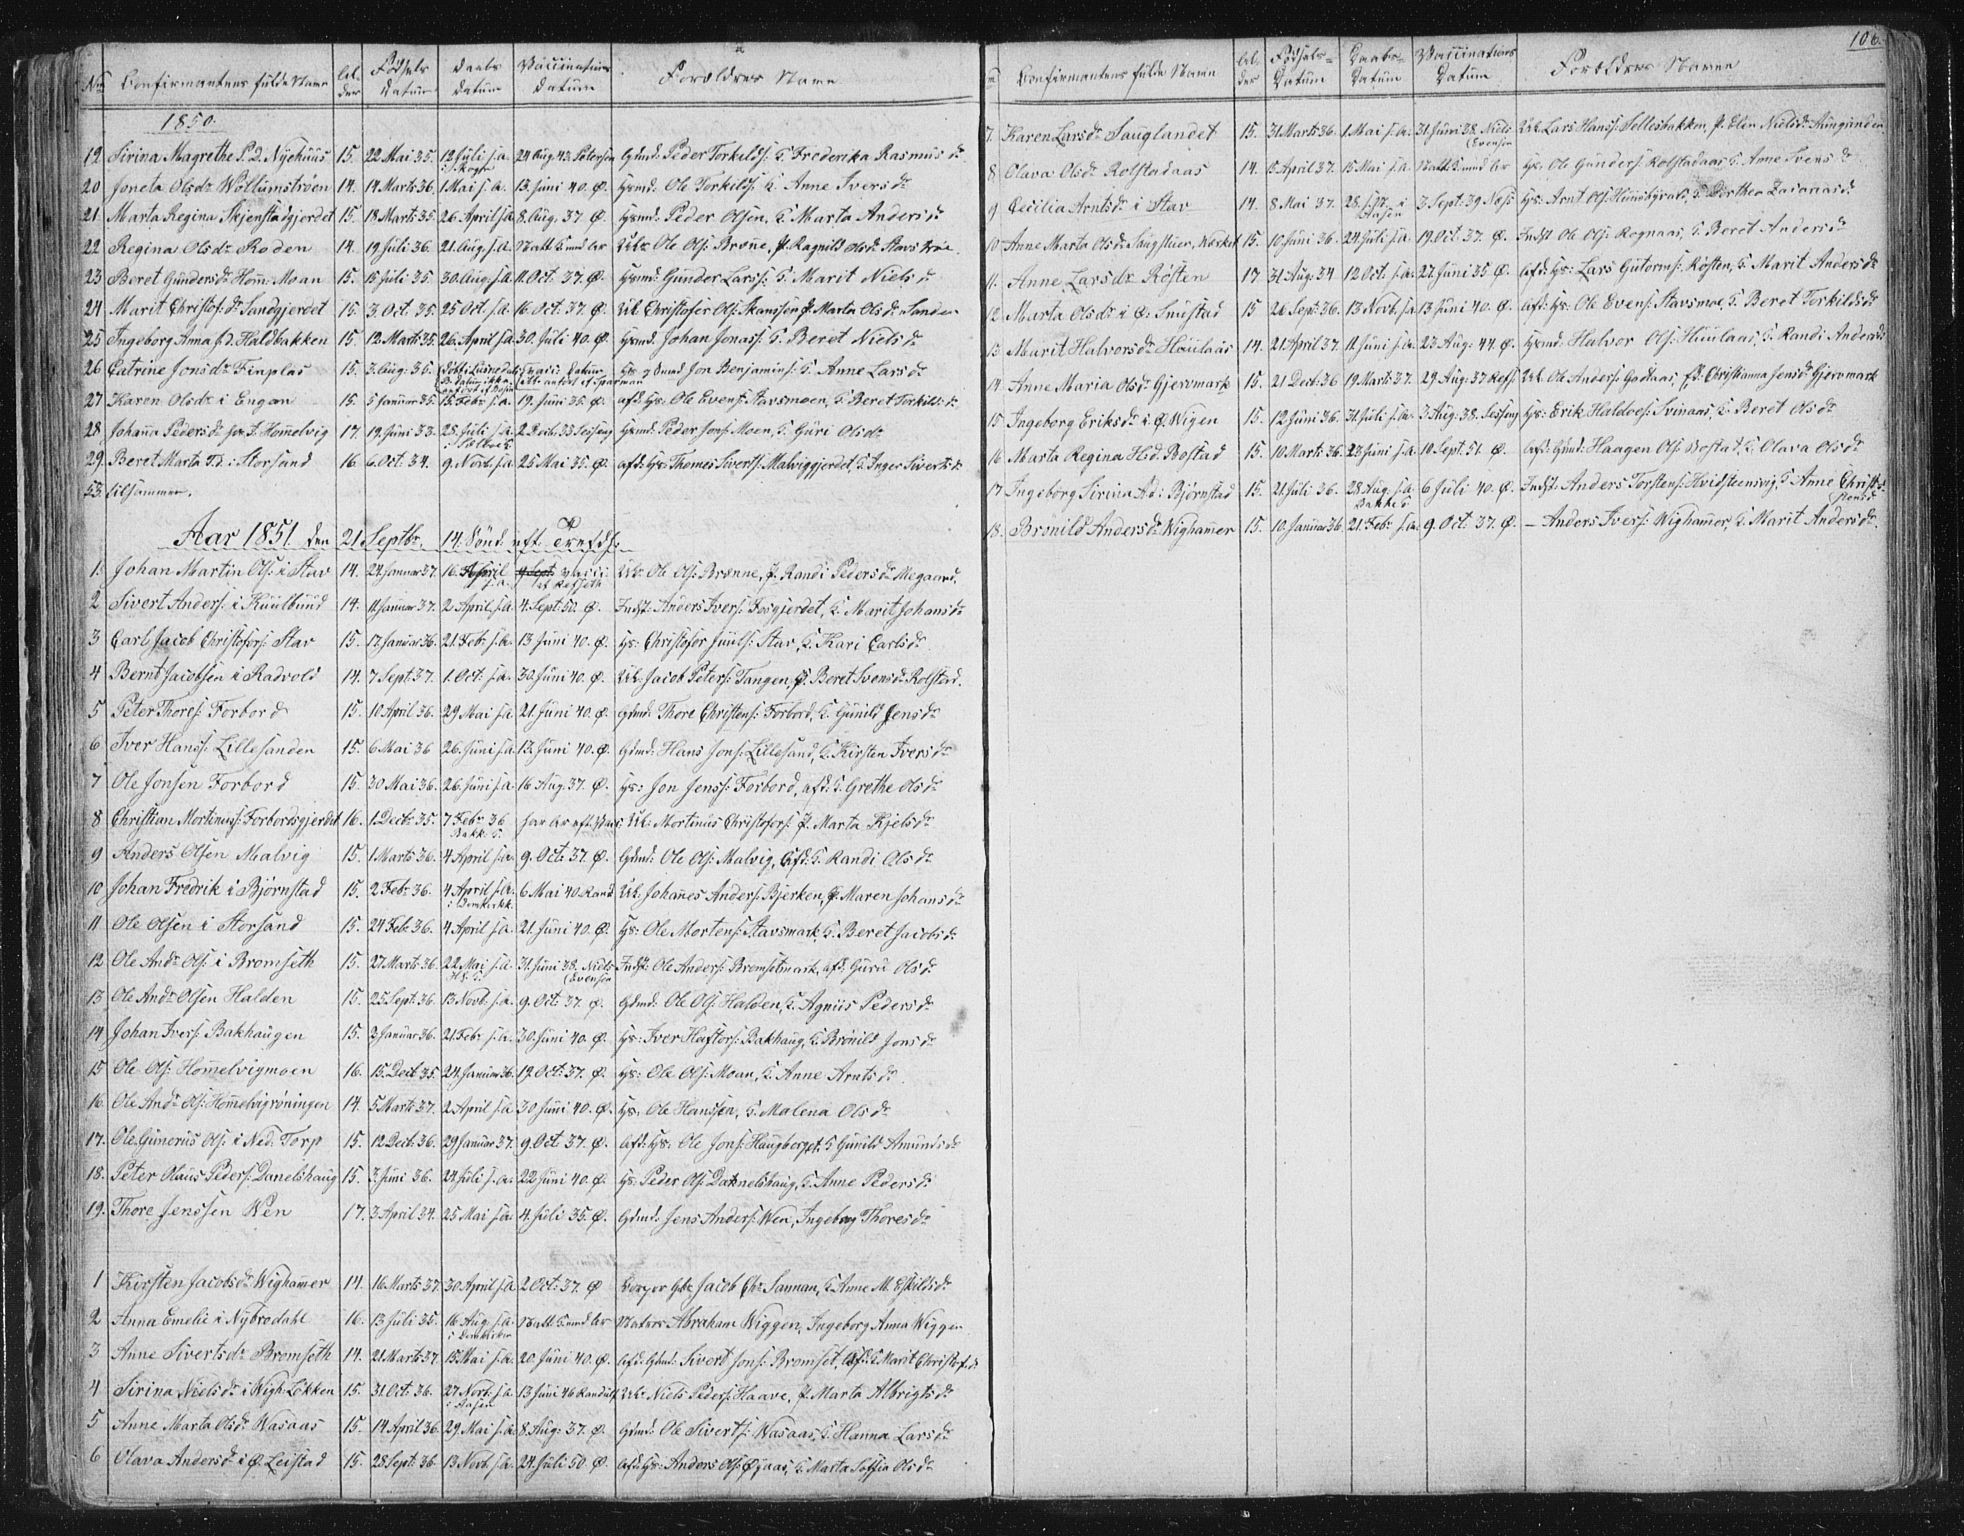 No Confirmantens fulde Navn Al- der Fødsels Datum Daabs Datum Vaccinations Datum Forældres Navne
1850.
19 Sirina Magrethe P.D. Nyehuus 15. 22 Mai 35. 12 Juli s.a. 24 Aug. 43. Petersen Gmd: Peder Torkelds: H. Frederika Rasmus dr
20 Joneta Olsdr Wollumstrøen 14. 14 Marts 36. 1 Mai s.a. 13. Juni 40. Ø. Hsmd: Ole Torkilds: H. Anne Ivers dr
21 Marta Regina Skjenstadgjerdet 15. 18 Marts 35. 26 April s.a. 8 Aug. 37 Ø. Hsmd: Peder Olsen, H. Marta Anders dr
22 Regina Olsdr Roden 14. 19 Juli 36. 21 Aug. s.a. Ole Ols: Brønne, P. Ragnild Olsdr
23 Beret Gundersdr Hom: Moan 15. 15 Juli 35. 30 Aug. s.a. 11 Oct. 37. Ø. Hsmd: Gunder Larss: H. Marit Niels dr
24 Marit Christofs: dr Sandgjerdet 15. 3. Oct. 35. 25 Oct. s.a. 16. Oct. 37. Ø. Christofer Ols: Skanssen P. Marta Ols dr Sanden
25 Ingeborg Anna J.d. Haldbakken 15. 12 Marts 35. 26. April s.a. 30. Juli 40. Ø. Hsmd. Johan Jonas: H. Beret Niels dr
26 Catrine Jonsdr Finplas 15. 3 Aug: 35. Hs: g Gmd Jon Benjamins: H. Anne Lars dr
27 Karen Olsdr i Engan 15. 5 Januar 35. 15. Febr s.a. 19. Juni 35. Ø. afd: Hs: Ole Evens: Stavsmoen, H. Beret Torkilds dr
28 Johanna Peders dr Homelvig 17. 19. Juni 33. 28. Juli s.a. 2 Decb. 35 Hsmd: Peder Jons: Moen, H. Guri Olsdr
29. Beret Marta T.d. i Storsand 16. 6 Oct. 34. 9 Novb. s.a. 25 Mai 35. Ø. afd: Hs: Thomes Siverts: Malviggjerdet, H. Inger Siverts dr
53. tilsammen.
Aar 1851. den 21 Septbr. 14. Sønd. eft. Trefds:
1. Johan Martin Ols: i Stav 14. 24 Januar 37. 16. April s.a. Ole Ols: Brønne, P. Randi Peders dr Megaard.
2 Sivert Anders: i Kuulbund 14. 11 Januar 37. 2 April s.a. 4. Sept. 50. Ø. Indst. Anders Ivers: Fosgjerdet, H. Marit Johans dr
3 Carl Jacob Christofers: Stav 15. 17 Januar 36. 21 Febr s.a. 13 Juni 40. Ø. Hs: Christofer Juuls: Stav, H. Kari Carls dr
4 Bernt Jacobsen i Radvold 14. 7 Sept: 37. 1. Oct. s.a. 30. Juni 40. Ø. Jacob Peters: Tangen, P. Beret Svensdr Rolstad.
5 Peter Thores: Forbord 15. 10 April 36. 29 Mai s.a. 21. Juni 40. Ø. Gdmd: Thore Christens: Forbord, H. Gunild Jens dr
6 Iver Hanss: Lillesanden 15. 6 Mai 36 26. Juni s.a. 13. Juni 40. Ø. Gdmd: Hans Jons: Lillesand, H. Kirsten Ivers dr
7 Ole Jonsen Forbord 15. 30 Mai 36. 26. Juni s.a. 16 Aug. 37. Ø. Hs: Jon Jenss: Forbord, afd: H. Grethe Ols dr
8 Christian Mortinus: Forbordsgjerdet 16. 1. Decbr 35. 7 Febr 36 Mortinus Christofers: P. Marta Kjels dr
9 Anders Olsen Malvig 15. 1 Marts 36. 4 April s.a. 9. Oct: 37. Ø. Gdmd: Ole Ols: Malvig, Afd: H. Randi Ols dr
10 Johan Fredrik i Bjørnstad 15. 2 Febr 36. 4 April s.a. i Domkirk. 6 Mai 40. Johanes Anders: Bjerken, P. Maren Johans dr
11 Ole Olsen i Storsand 15. 24 Febr 36. 4 April s.a. 21. Juni 40. Ø. Hs: Ole Mortens: Stavsmark, H. Beret Jacobs dr
12 Ole Andr Ols: i Bromseth 15. 27 Marts 36. 22 Mai s.a. 31. Juni 38. Niels Evensen Indst: Ole Anders: Bromsetmark, afd: Guru Ols dr
13 Ole Andr Olsen Halden 15. 25 Sept. 36. 13 Novb. s.a. 9. Oct: 37. Ø. Gdmd: Ole Ols: Halden, H. Agnus Peders dr
14 Johan Ivers: Bakhaugen 15. 3 Januar 36. 21. Febr. s.a. 30. Juni 40. Ø. Hs: Iver Haftors: Bakhaug, H. Brønild Jons dr
15 Ole Ols: Homelvigmoen 16. 15. Decb 35. 24. Januar 36. 19. Oct: 37. Ø. Hs: Ole Ols: Moan, H. Anne Arnts dr
16 Ole Andr Ols: Homelvigrøningen 14. 5 Marts 37. 2 April s.a. 30 Juni 40. Ø. Hs: Ole Hanssen, H. Malena Ols dr
17. Ole Gunerius Ols: i Ned. Torp 15. 12 Decb. 36. 29 Januar 37. 9. Oct 37. Ø. Afd: Hs: Ole Jons: Haugberget H Gunild Amunds dr
18. Peter Olaus Peders: Danelshaug 15. 3 Juni 36. 24 Juli s.a. 22 Juni 40. Ø. Hs: Peder Ols: Danelshaug, H. Anne Peders dr
19. Thore Jenssen Wen 17. 3 April 34. 25 Mai s.a. 4. Juli 35. Ø. Gdmd: Jens Anders: Wen, Ingeborg Thores dr
1 Kirsten Jacobsdr Wighamer 14. 16 Marts 37. 30 April s.a. 2 Oct: 37. Ø Jacob Chr. Sannan, H. Anne M. Eskilds dr
2 Anna Emelie i Nybrodahl 16. 13 Juli 35. 16 Aug. s.a. i Domkirken Abraham Wiggen, Ingeborg Anna Wiggen
3 Anne Siverts dr Bromseth 14. 21 Marts 37. 15 Mai s.a. 20. Juni 40. Ø. Afd: Gdmd: Sivert Jons: Bromset, Afd: H. Marit Christofs dr
4 Sirina Niels dr i Wigh: Løkken 15. 31. Oct: 36. 27 Novb. s.a. i Aasen 13 Juni 46 Niels Peders: Haave, P. Marta Albrigts dr
5 Anne Marta Olsdr Wasaas 15. 14 April 36. 29. Mai s.a. 8. Aug: 37. Ø. Gdmd: Ole Siverts: Wasaas, H. Hanna Lars dr
6 Olava Anders dr i Ø. Leistad 15. 28 Sept: 36. 13 Novb. s.a. 24. Juli 50. Ø. afd: Hs: Anders Ols: Øyaas, H. Marta Sofia Ols dr
106.
Confirmantens fulde Navn Al- der Fødsels- Datum Daabs- Datum Vaccinations Datum Forældres Navne
7. Karen Lars dr Sauglandet 15. 31 Marts 36. 1 Mai s.a. 31 Juni 38. Niels Evensen Lars Hanss: Sellesbakken, P. Elen Niels dr
8 Olava Ols dr Rolstadaas 14. 5 April 37. 15 Mai s.a. Hs: Ole Gunders: Rolstadaas H. Anne Svens dr
9 Cecilia Arnts dr i Stav 14. 8 Mai 37. i Aasen 3. Sept. 39 Hs: Arnt Ols: H. Dorthea Zacarias dr
10 Anne Marta Ols dr 15. 10 Juni 36. 24 Juli s.a. 19 Oct: 37. Ø. Indst Ole Ols: Rognaas, H. Beret Anders dr
11. Anne Lars dr Røsten 17 31 Aug: 34 12 Oct. s.a. 27 Juni 35 Ø. afd: Hs: Lars Gutorms: Røsten, H. Marit Anders dr
12 Marta Ols dr i Ø: Smistad 15 26 Sept. 36. 13 Novb. s.a. 13 Juni 40. Ø. afd: Hs. Ole Evens: Stavsmoe, H. Beret Torkilds dr
13 Marit Halvors dr Huulaas 14. 21 April 37. 11. Juni s.a. 23 Aug: 44. Ø. Hsmd: Halvor Ols: Huulaas, H. Randi Anders dr
14 Anne Maria Ols dr Gjervmark 15. 21 Decb. 36 19 Marts 37. 29 Aug: 37 Ole Anders: Godaas, P. Christianna Jens dr Gjervmark
15 Ingeborg Eriks dr i Ø. Wigen 15. 12 Juni 36. 31 Juli s.a. 3 Aug: 38. Hs: Erik Haldoes: Svinaas, H. Beret Ols dr
16 Marta Regina H.d. Bostad 15. 10 Marts 36. 23 Juni s.a. 10 Sept. 51. Ø. Afd: Gdmd: Haagen Ols: Bostad, H. Olava Ols dr
17. Ingeborg Sirina A.d. i Bjørnstad 15. 21 Juli 36. 28 Aug. s.a. Bakke 6 Juli 40. Ø. Indst: Anders Torstens: Hvidsteensvig, H. Anne Christens dr
18. Brønild Anders dr Wighamer 15. 10 Januar 36. 21 Febr s.a. 9. Oct. 37. Ø. — Anders Ivers: Wighamer, H. Marit Anders dr.